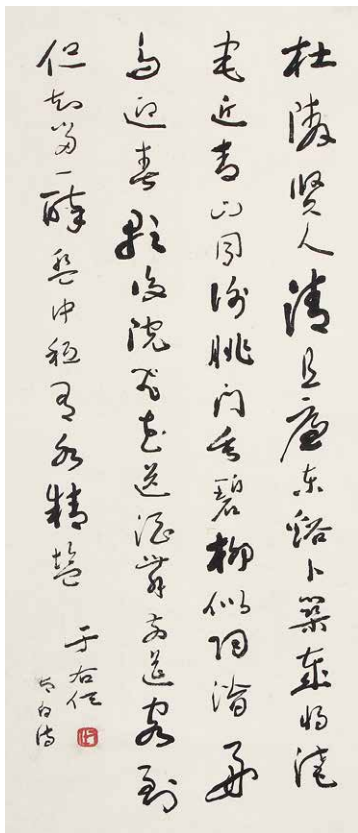 杜陵賢人清且廉東谿卜築歲將淹
宅近青山同謝朓門垂碧柳似陶潛好
鳥迎春歌後院飛花送酒舞前簷客到
但知留一醉盤中祇有水精鹽
于右任
太白詩